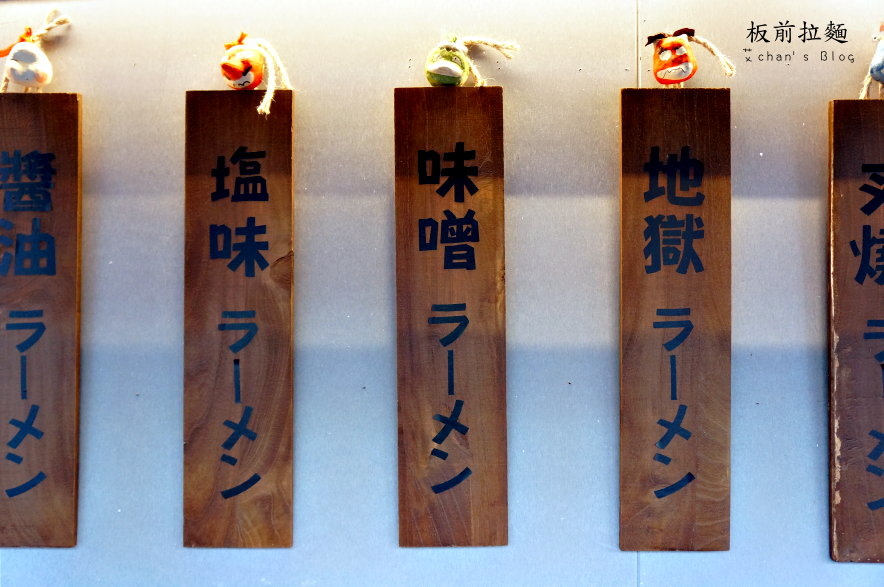 板前拉麵
艾chan's Blog
醬油ラーメン
塩味ラーメン
味噌ラーメン
地獄ラーメン
ラーメン